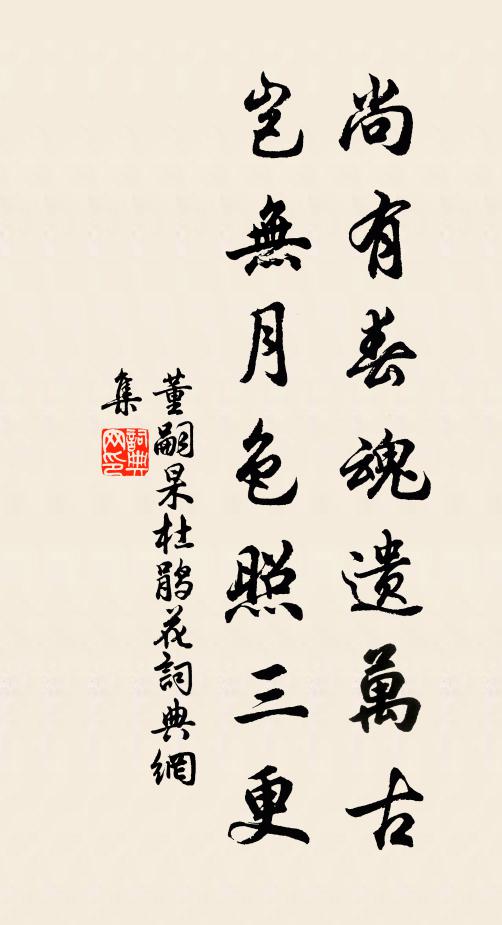 尚有春魂遺萬古
豈無月色照三更
董嗣杲杜鵑花詞典網
集
詞典
网印